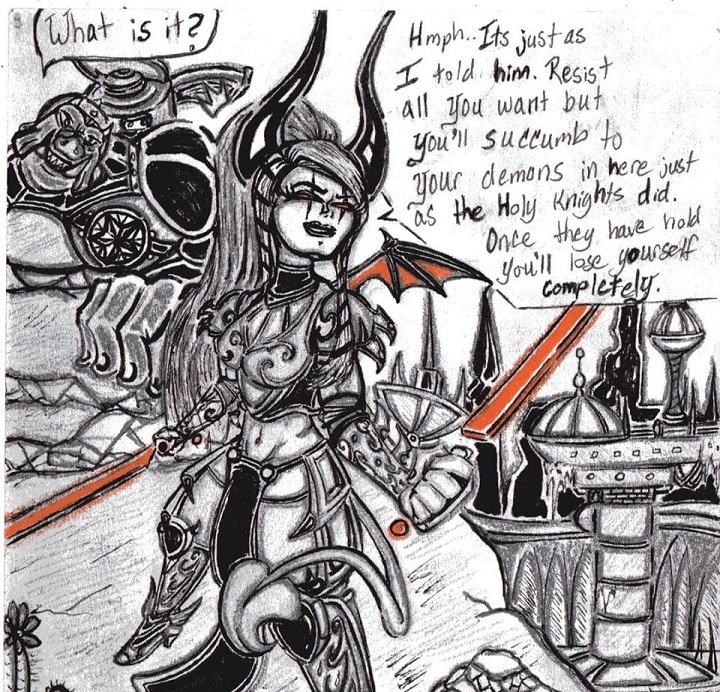 What is it?
Hmph.. Its just as
I told him. Resist
all you want but
you'll succumb to
your demons in here just
as the Holy Knights did.
Once they have hold
you'll lose yourself
completely.